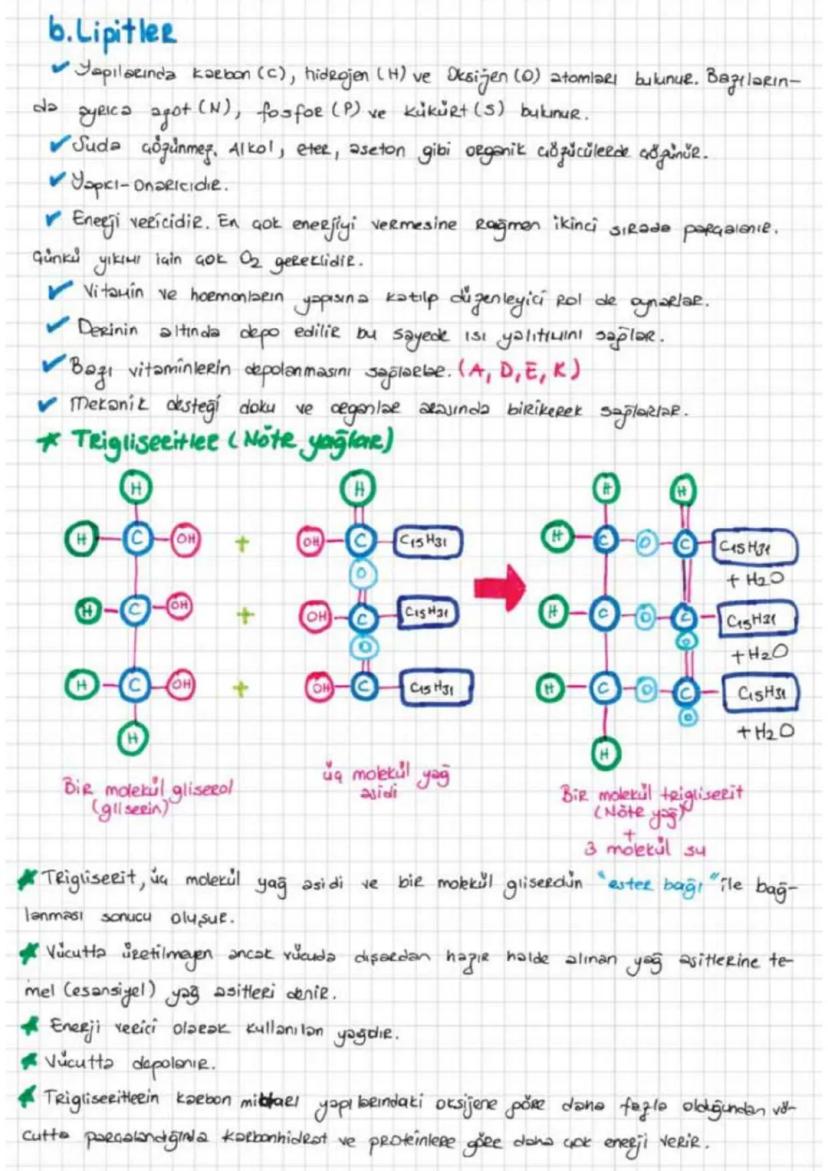 b. Lipitler
✓ Yapılarında karbon (C), hidrojen (H) ve Oksijen (O) atomları bulunur. Bazıların-
da ayrıca azot (N), fosfor (P) ve kükürt (S) bulunur.
✓ Suda çözünmez. Alkol, eter, aseton gibi organik çözücülerde çözünür.
✓ Yapıcı-onarıcıdır.
✓ Enerji vericidir. En çok enerjiyi vermesine rağmen ikinci sırada parçalanır.
Çünkü yıkımı için çok O2 gereklidir.
✓ Vitamin ve hormonların yapısına katılp düzenleyici rol de oynarlar.
✓ Derinin altında depo edilir bu sayede ısı yalıtımını sağlar.
✓ Bazı vitaminlerin depolanmasını sağlarlar. (A, D, E, K)
✓ Mekanik desteği doku ve organlar arasında birikerek sağlarlar.
★ Trigliseritler (Nötr yağlar)
H H H H
H C OH + OH C C15H31 H C O C C15H31
O + H2O
H C OH + OH C C15H31 H C O C C15H31
O O + H2O
H C OH + OH C C15H31 H C O C C15H31
O + H2O
H H
Bir molekül gliserol
(gliserin)
üç molekül yağ
asidi
Bir molekül trigliserit
(Nötr yağ)
+
3 molekül su
★ Trigliserit, üç molekül yağ asidi ve bir molekül gliserolün "ester bağı" ile bağ-
lanması sonucu oluşur.
★ Vücutta üretilmeyen ancak vücuda dışardan hazır halde alınan yağ asitlerine te-
mel (esansiyel) yağ asitleri denir.
★ Enerji verici olarak kullanılan yağdır.
★ Vücutta depolanır.
★ Trigliseritlerin karbon miktarı yapılarındaki oksijene göre daha fazla olduğundan vü-
cutta parçalandığında karbonhidrat ve proteinlere göre daha çok enerji verir.